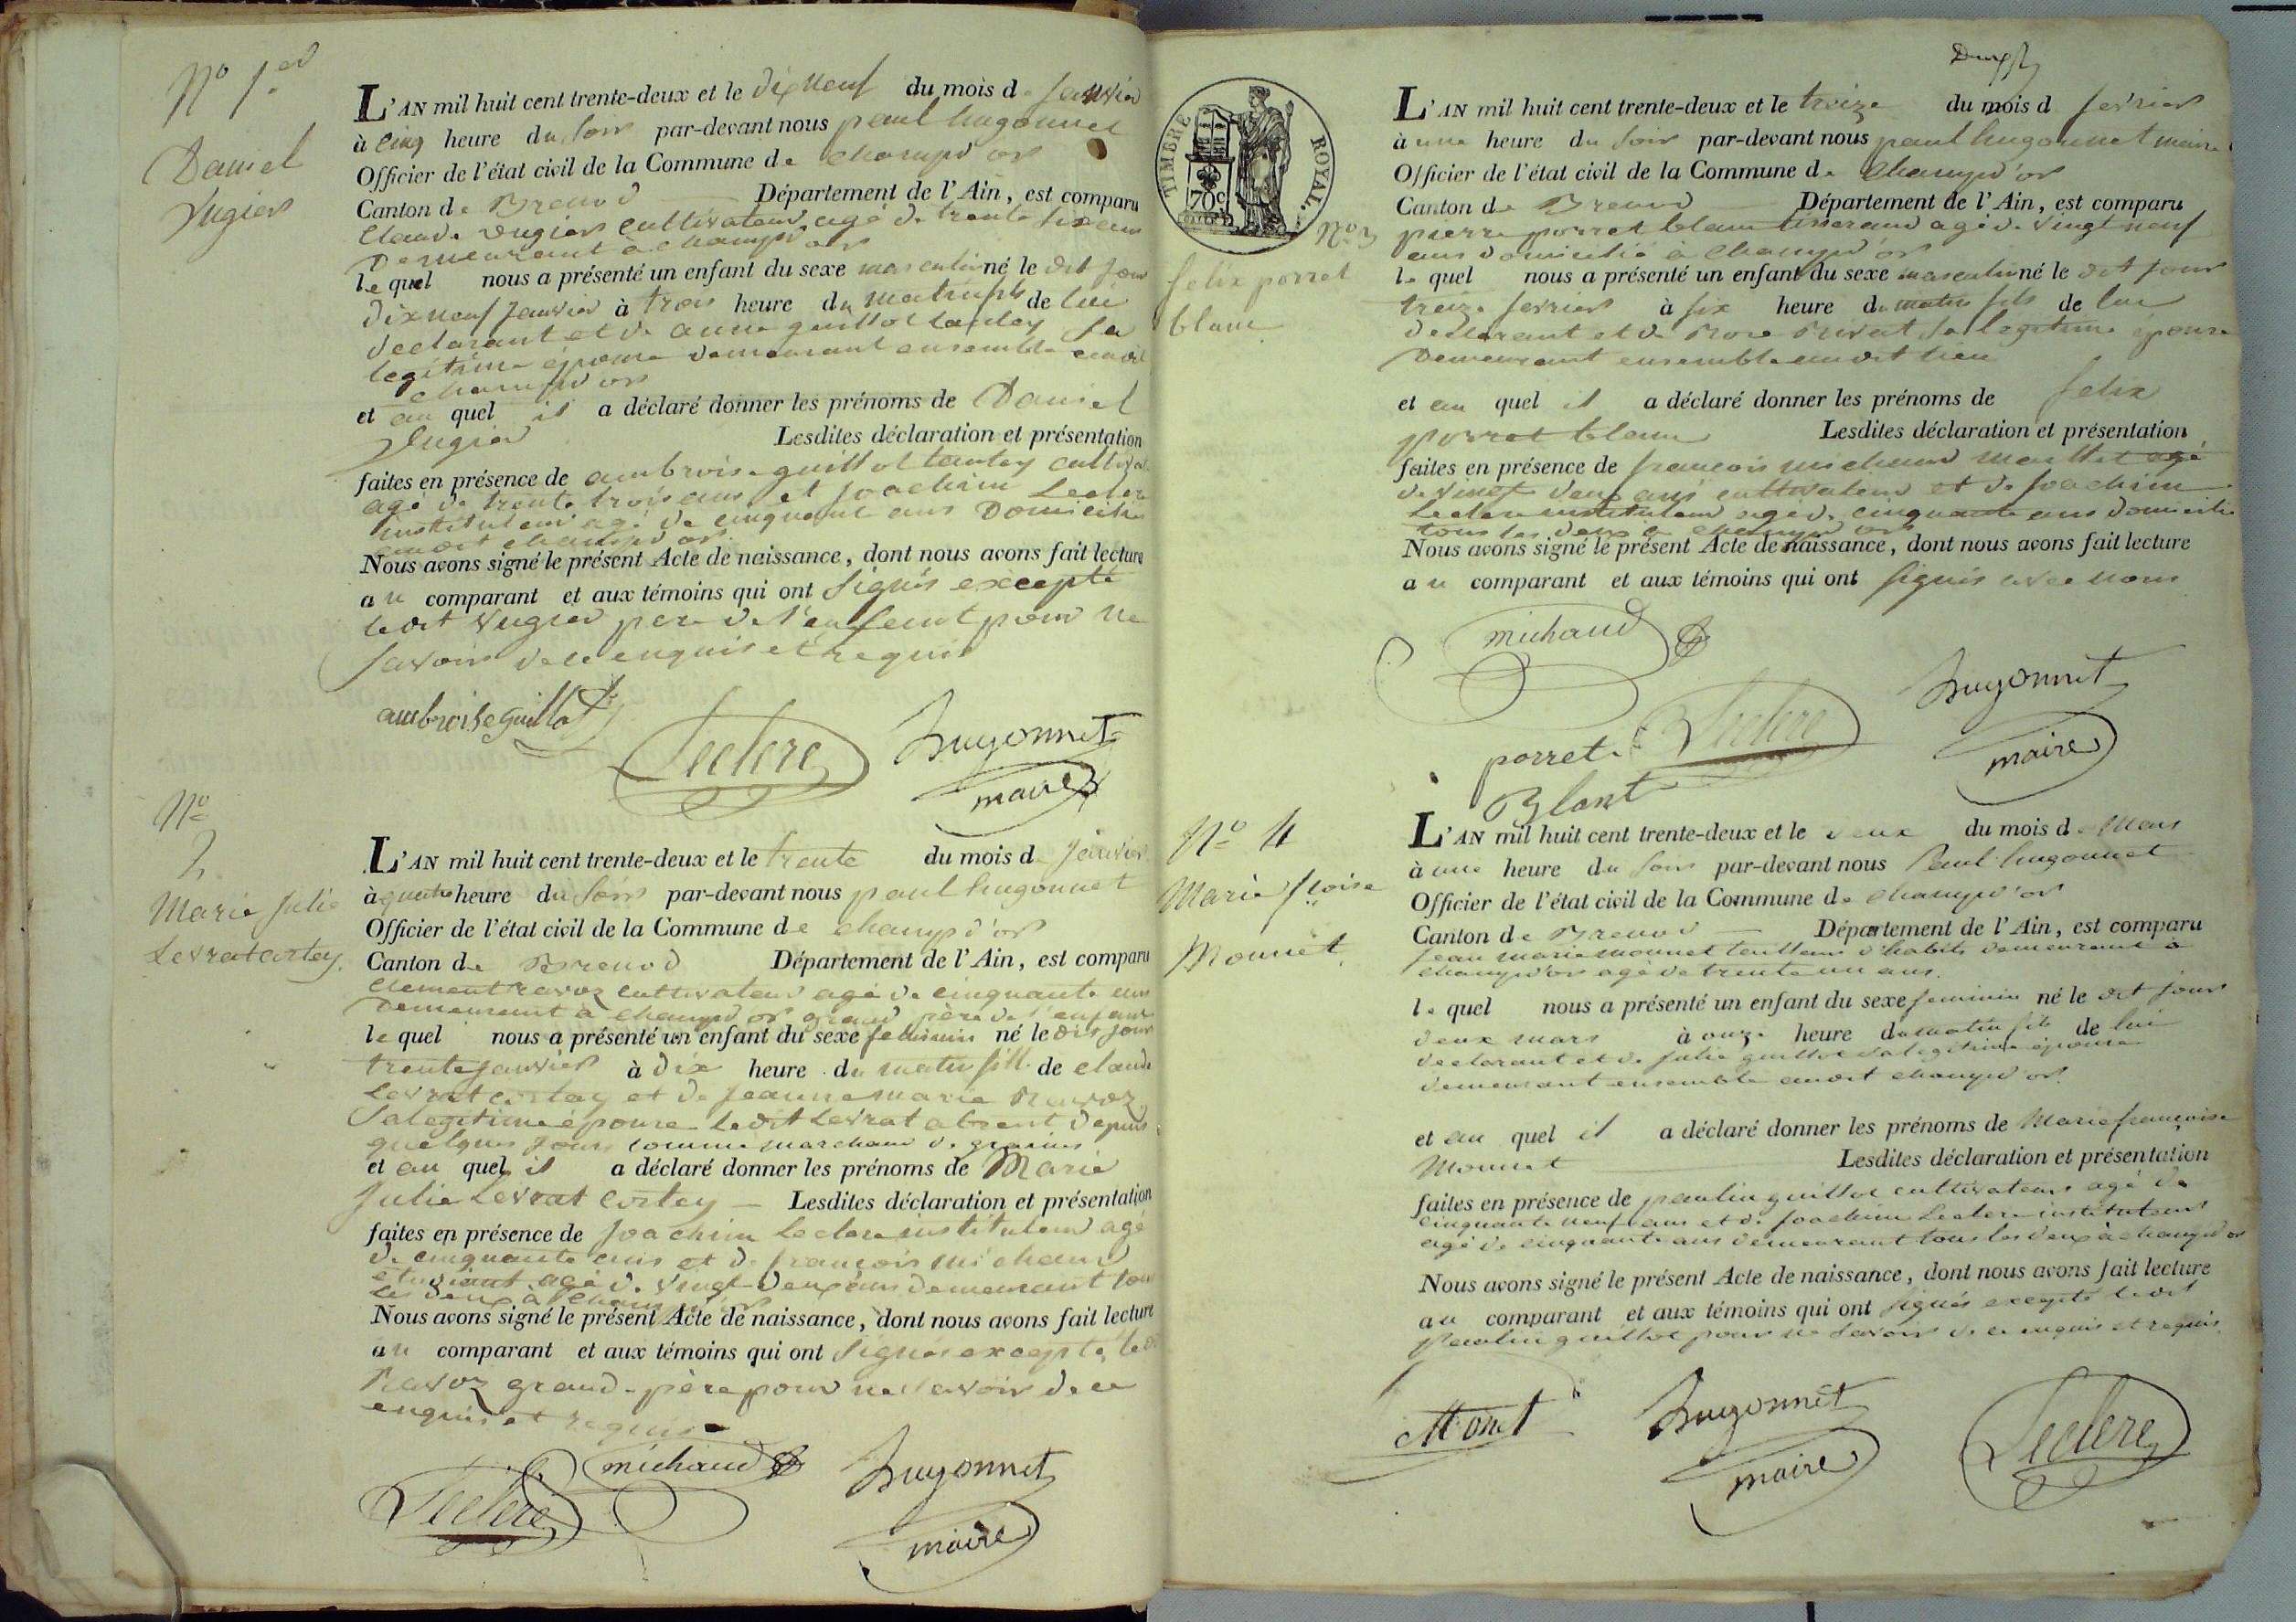 No 1er
Daniel
Vugier
L'AN mil huit cent trente-deux et le dix neuf du mois de janvier
à cinq heure du soir par-devant nous paul hugonnet
Officier de l'état civil de la Commune de champd'or
Canton de Brenod Département de l'Ain, est comparu
Claude vugier cultivateur agé de trente six ans
Demeurant a champd'or
lequel nous a présenté un enfant du sexe masculin né le dit jour
dix neuf janvier à trois heure du matin fils de lui
declarant et de anne guillot tanley sa
legitime épouse demeurant ensemble audit
champd'or
et au quel il a déclaré donner les prénoms de Daniel
Vugier Lesdites déclaration et présentation
faites en présence de ambroise guillot tanley cultivat
agé de trente trois ans et joachim Leclerc
instituteur agé de cinquant ans Domicilié
audit champd'or
Nous avons signé le présent Acte de naissance, dont nous avons fait lecture
au comparant et aux témoins qui ont signés excepté
ledit Vugier pere de l'enfant pour ne
savoir de ce enquis et requis
ambroise guillot
Leclerc hugonnet
maire
No
2
Marie Julie
Levrat cortey
L'AN mil huit cent trente-deux et le trente du mois de janvier
à quatre heure du soir par-devant nous paul hugonnet
Officier de l'état civil de la Commune de champd'or
Canton de Brenod Département de l'Ain, est comparu
Clement ravoz cultivateur agé de cinquante ans
Demeurant à champd'or grand père de l'enfant
lequel nous a présenté un enfant du sexe feminin né le dit jour
trente janvier à dix heure du matin fille de claude
Levrat cortey et de jeanne marie Ravoz
sa legitime épouse ledit Levrat absent depuis
quelques jours comme marchand de graines
et au quel il a déclaré donner les prénoms de Marie
Julie Levrat Cortey Lesdites déclaration et présentation
faites en présence de joachim Leclerc instituteur agé
de cinquante ans et de françois michaud
étudiant agé de vingt deux ans demeurant tous
les deux à champd'or
Nous avons signé le présent Acte de naissance, dont nous avons fait lecture
au comparant et aux témoins qui ont signés excepté ledit
Ravoz grand-père pour ne savoir de ce
enquis et requis
michaud hugonnet
Leclerc
maire
TIMBRE ROYAL
70c
No 3
felix porret
blanc
L'AN mil huit cent trente-deux et le treize du mois d fevrier
à une heure du soir par-devant nous paul hugonnet maire
Officier de l'état civil de la Commune de champd'or
Canton de Brenod Département de l'Ain, est comparu
pierre porret blanc tisserand agé de vingt neuf
ans domicilié à champd'or
lequel nous a présenté un enfant du sexe masculin né le dit jour
treize fevrier à six heure du matin fils de lui
declarant et de Rose sa legitime épouse
Demeurant ensemble audit lieu
et au quel il a déclaré donner les prénoms de felix
porret blanc Lesdites déclaration et présentation
faites en présence de françois michaud maillet agé
de vingt deux ans cultivateur et de joachim
Leclerc instituteur agé de cinquante ans domicilié
tous les deux à champd'or
Nous avons signé le présent Acte de naissance, dont nous avons fait lecture
au comparant et aux témoins qui ont signés avec nous
michaud
hugonnet
porret Leclerc maire
Blant
No 4
Marie fçoise
Monnet
L'AN mil huit cent trente-deux et le deux du mois de Mars
à une heure du soir par-devant nous Paul hugonnet
Officier de l'état civil de la Commune de champd'or
Canton de Brenod Département de l'Ain, est comparu
jean marie monnet tailleur d'habits demeurant à
champd'or agé de trente un ans
lequel nous a présenté un enfant du sexe feminin né le dit jour
deux mars à onze heure du matin fils de lui
declarant et de julie guillot sa legitime épouse
demeurant ensemble audit champd'or
et au quel il a déclaré donner les prénoms de Marie françoise
Monnet Lesdites déclaration et présentation
faites en présence de paulin guillot cultivateur agé de
cinquante neuf ans et de joachim Leclerc instituteur
agé de cinquante ans demeurant tous les deux à champd'or
Nous avons signé le présent Acte de naissance, dont nous avons fait lecture
au comparant et aux témoins qui ont signés excepté ledit
Paulin guillot pour ne savoir de ce enquis et requis
Monet hugonnet Leclerc
maire